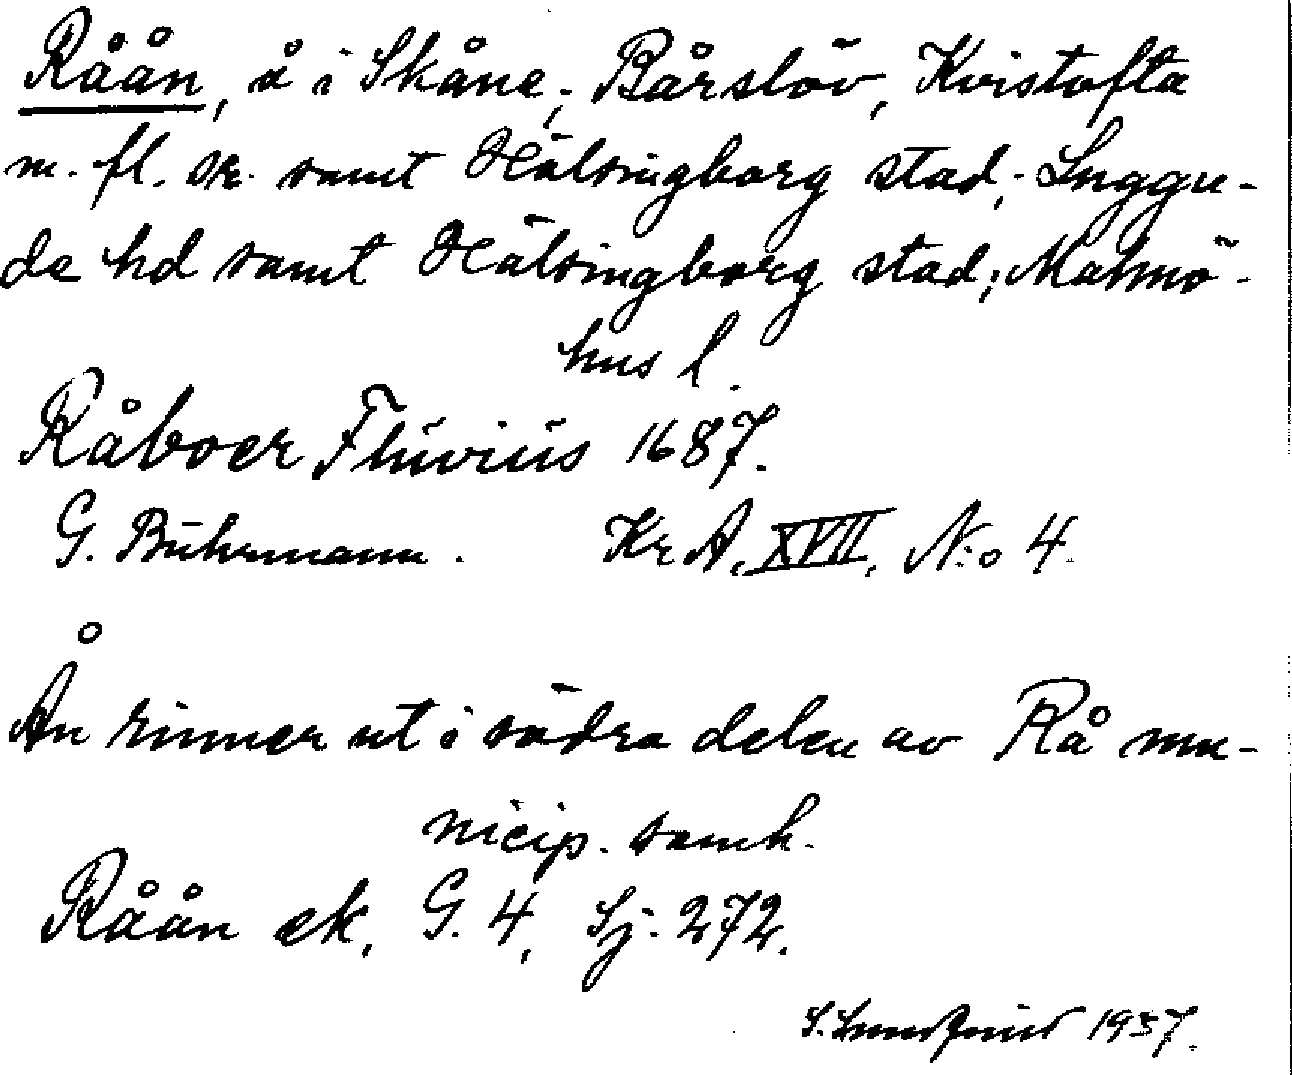 Råån, å i Skåne; Bårslöv, Kvistofta
m. fl. sr. samt Hälsingborg stad; Luggu-
de hd samt Hälsingborg stad; Malmö-
hus l.
Råboer Fluvius 1687.
G. Buhrmann. Kr A, XVII, N:o 4.
Ån rinner ut i södra delen av Rå mu-
nicip. samh.
Råån ek, G. 4, Sj. 272.
1937.